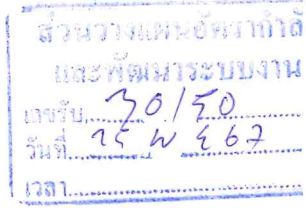 ส่วนวางแผนอัตรากำลั
และพัฒนาระบบงาน
เลขรับ
วันที่ 25
เวลา